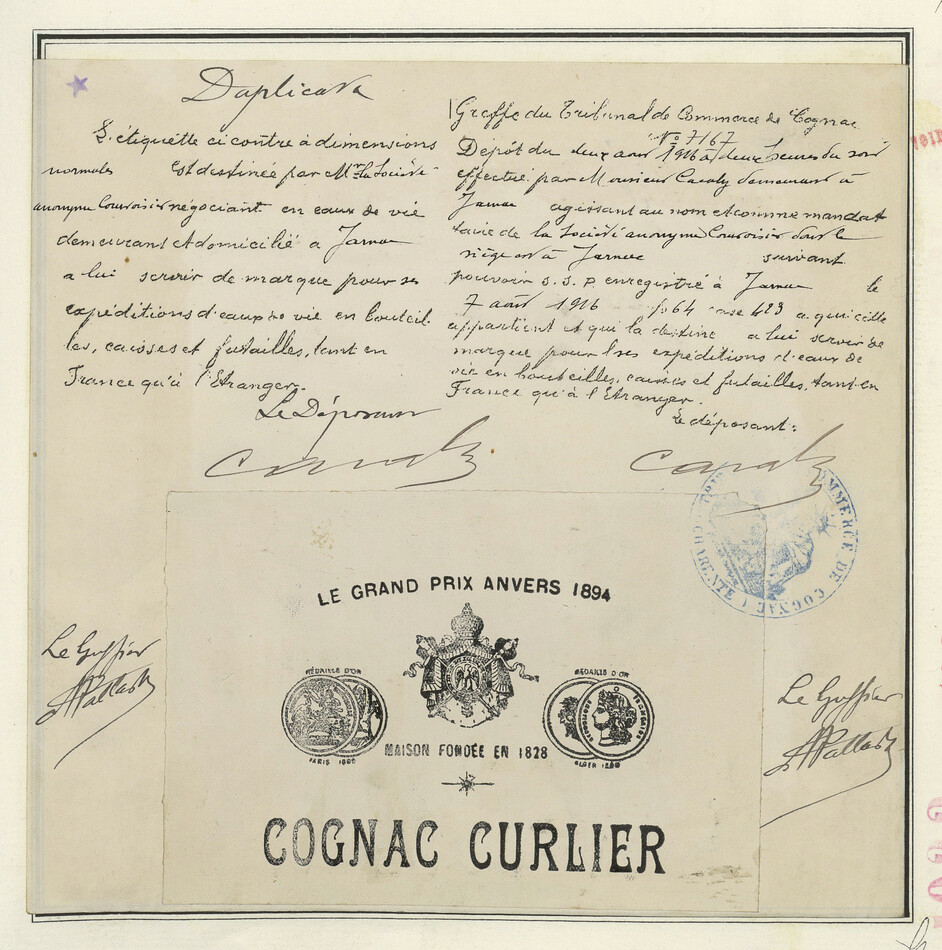 Duplicata
L'étiquette ci contre à dimensions
normales Est destinée par Mr la Société
anonyme Courvoisier négociant en eaux de vie
demeurant et domicilié à Jarnac
a lui servir de marque pour ses
expéditions d'eaux de vie en bouteil
les, caisses et futailles, tant en
France qu'à l'Etranger.
Le Déposant
Greffe du Tribunal de Commerce de Cognac
No 7167
Depôt du deux aout 1916 à deux heures du soir
effectué par Monsieur demeurant à
Jarnac agissant au nom et comme mandat
taire de la Société anonyme Courvoisier dont le
siège est à Jarnac suivant
pouvoir S.S.P. enregistré à Jarnac le
7 août 1916 fo 64 case 423 a qui elle
appartient et qui la destine a lui servir de
marque pour ses expéditions d'eaux de
vie en bouteilles, caisses et futailles, tant en
France qu'à l'Etranger.
Le déposant:
COMMERCE DE COGNAC
CHARENTE
Le Greffier
Le Greffier
LE GRAND PRIX ANVERS 1894
MÉDAILLE D'OR
MÉDAILLE D'OR
MAISON FONDÉE EN 1828
PARIS
COGNAC CURLIER